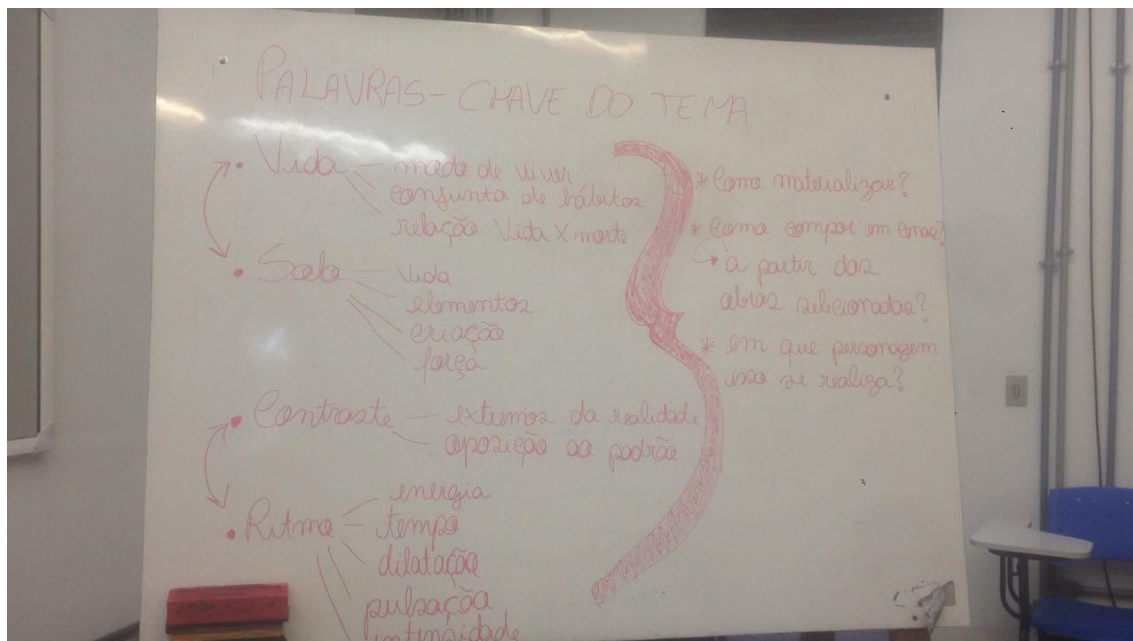 PALAVRAS-CHAVE DO TEMA
• Vida — modo de viver
conjunto de hábitos
relação Vida X morte
• Solo — vida
elementos
criação
força
• Contraste — extremos da realidade
oposição ao padrão
• Ritmo — energia
tempo
dilatação
pulsação
intensidade
* Como materializar?
* Como compor em cena?
à partir das
obras selecionadas?
* em que personagem
isso se realiza?